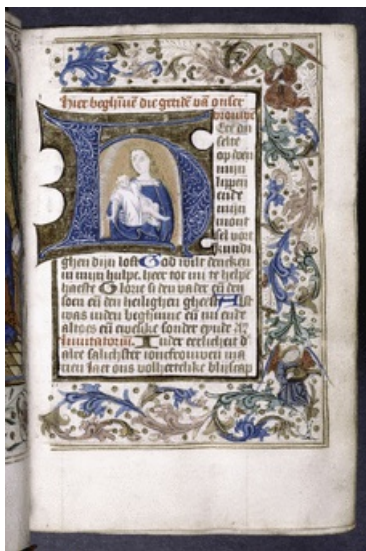 Hier beghinnē die getidē vā onser
vrouwē
Ere du
selte
op doen
mijn
lippen
ende
mijn
mont
sel vort
kundi
ghen dijn lof God wilt dencken
in mijn hulpe heer tot mi te helpē
haeste Glorie si den vader eñ den
soen eñ den heilighen gheest Alst
was inden beghinne eñ nu ende
altoes eñ ewelike sonder eynde
Inuitatoriū. Inder eerlicheit d
alre salichster ioncfrouwen ma
rien laet ons volhertelike bliscap